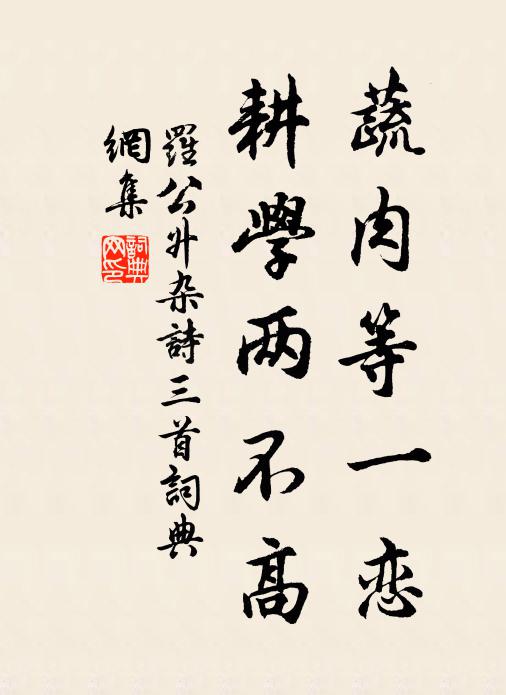 蔬肉等一恋
耕學两不高
羅公升杂詩三首詞典
網集
詞典
网印